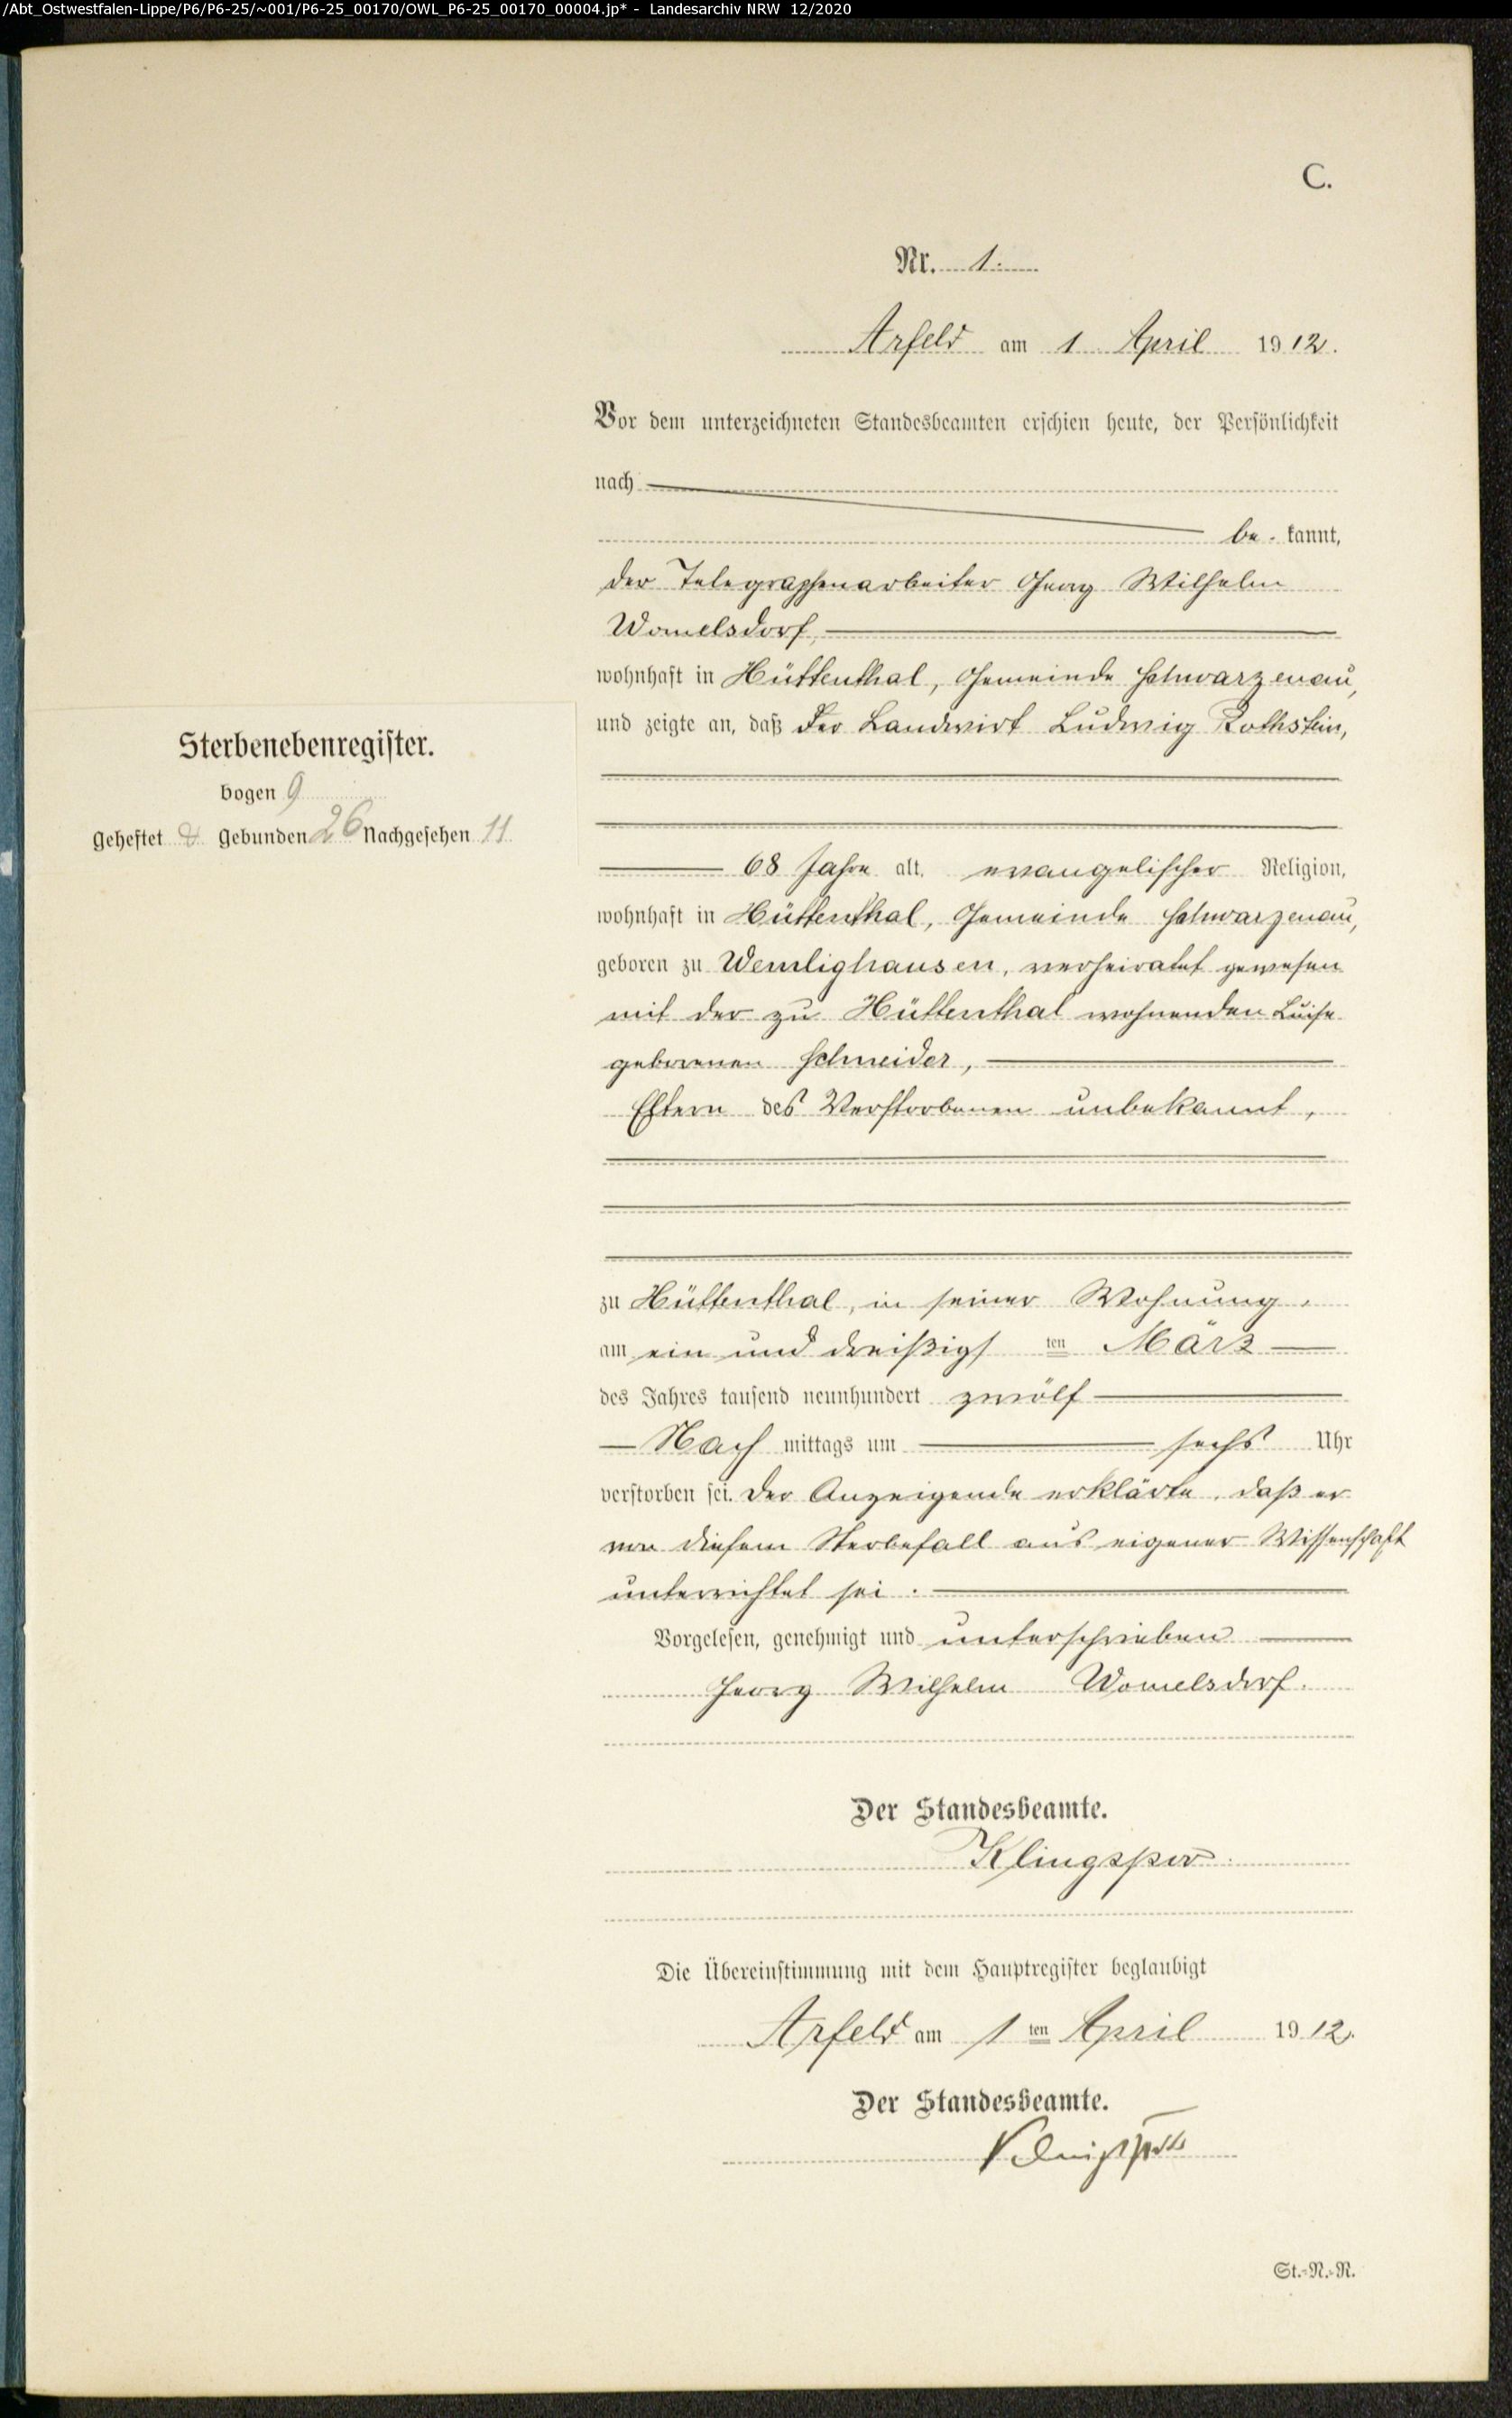 /Abt_Ostwestfalen-Lippe/P6/P6-25/~001/P6-25_00170/OWL_P6-25_00170_00004.jp* - Landesarchiv NRW 12/2020
C.
Nr. 1.
Arfeld am 1 April 1912.
Vor dem unterzeichneten Standesbeamten erschien heute, der Persönlichkeit
nach
be kannt,
der Telegraphenarbeiter Georg Wilhelm
Womelsdorf,
wohnhaft in Hüttenthal, Gemeinde Schwarzenau,
und zeigte an, daß der Landwirt Ludwig Rothstein,
68 Jahre alt, evangelischer Religion,
wohnhaft in Hüttenthal, Gemeinde Schwarzenau,
geboren zu Wemlighausen, verheiratet gewesen
mit der zu Hüttenthal wohnenden Luise
geborenen Schneider,
Eltern des Verstorbenen unbekannt,
zu Hüttenthal, in seiner Wohnung,
am ein und dreißigs ten März
des Jahres tausend neunhundert zwölf
Nach mittags um sechs Uhr
verstorben sei. Der Anzeigende erklärte, daß er
von diesem Sterbefall aus eigener Wissenschaft
unterrichtet sei.
Vorgelesen, genehmigt und unterschrieben
Georg Wilhelm Womelsdorf.
Der Standesbeamte.
Klingspor.
Die Übereinstimmung mit dem Hauptregister beglaubigt
Arfeld am 1 ten April 1912.
Der Standesbeamte.
Klingspor
St.-N.-R.
Sterbenebenregister.
bogen 9
Geheftet Gebunden 26 Nachgesehen 11